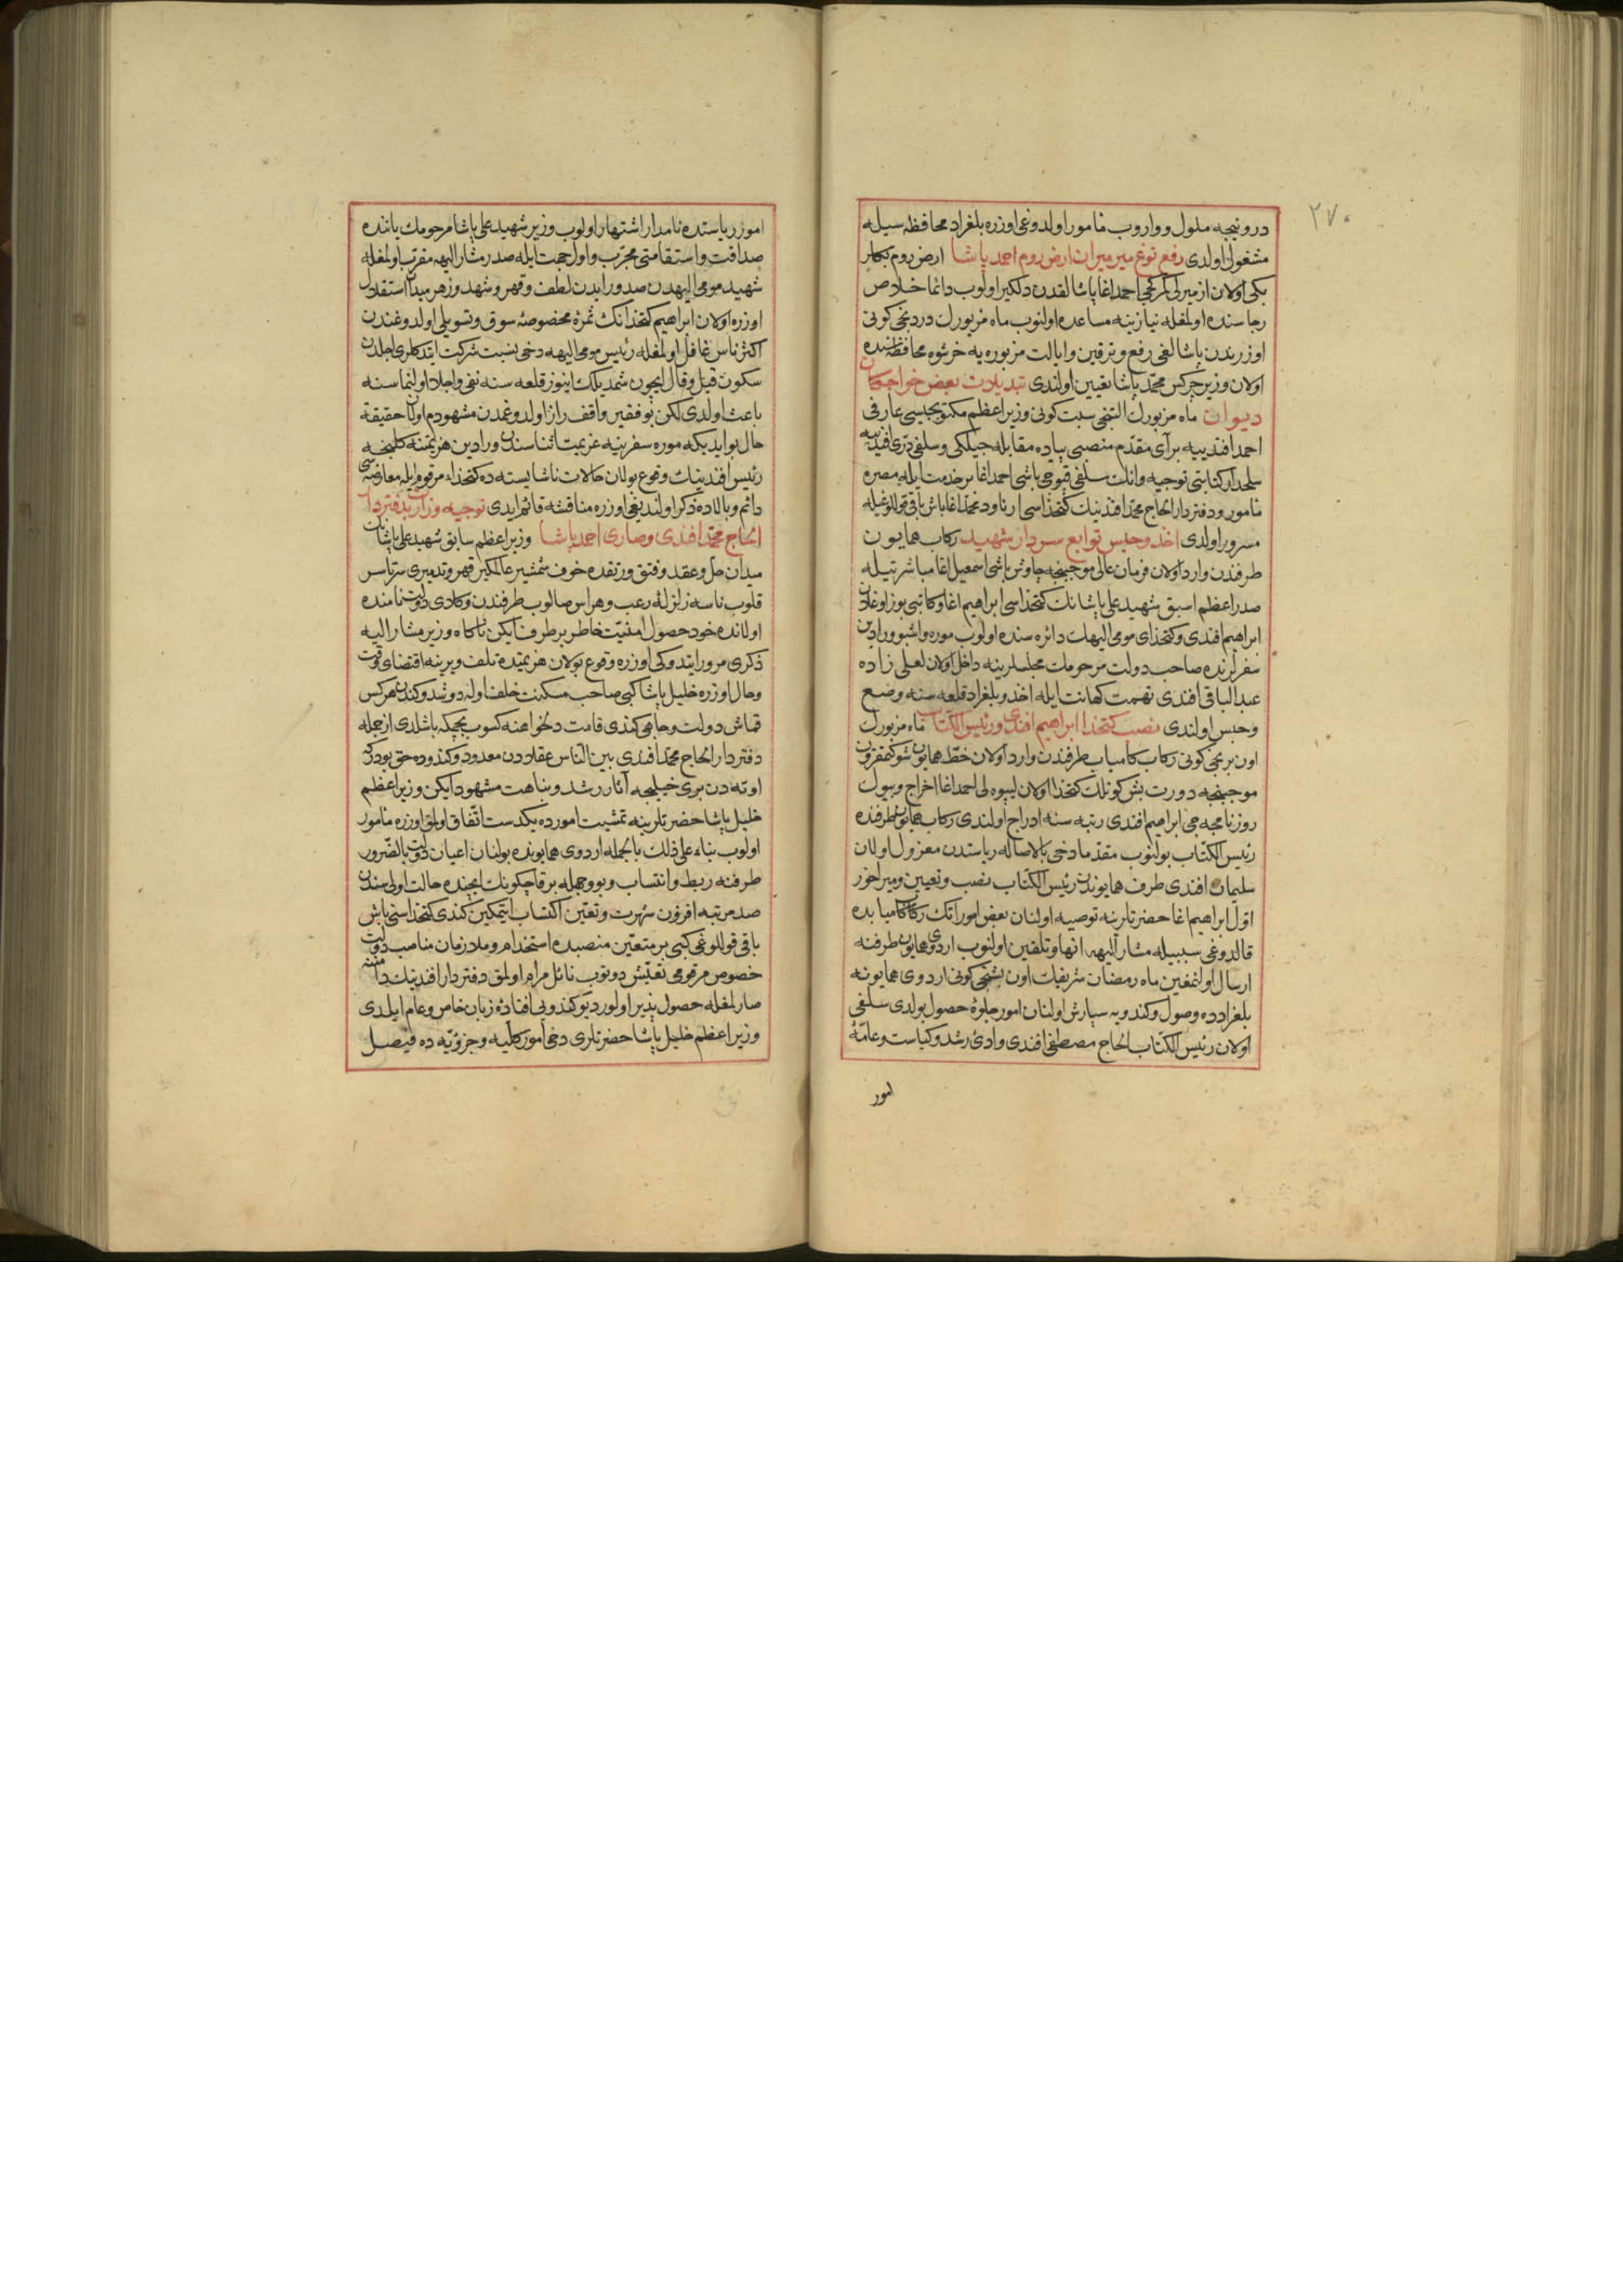 ٢٧٠
درونیجه ملول و واروب مأمور اولدوغی اوزره بلغراد محافظه سیله
مشغول اولدی رفع توغ میرمیران ارض روم احمد پاشا ارض روم بکلر
بکی اولان ازمیرلی کمرکجی احمد اغا پاشالقدن دلکیر اولوب دائما خلاص
رجاسنده اولمغله نیازینه مساعده اولنوب ماه مزبورك دردنجی کونی
اوزرندن پاشالغی رفع و ترقین و ایالت مزبوره یه خرشوه محافظه سنده
اولان وزیر چرکس محمد پاشا تعیین اولندی تبدیلات بعض خواجکان
دیوان ماه مزبورك التنجی سبت کونی وزیر اعظم مکتوبجیسی عارفی
احمد افندییه برآی مقدم منصبی پیاده مقابله جیلکی و سلفی دری افندییه
سلحدار کتابتی توجیه و انك سلفی قپوجی باشی احمد اغا بر خدمت ایله مصره
مأمور و دفتردار الحاج محمد افندینك کتخداسی ارناود محمد اغا باش باقی قوللوغیله
مسرور اولدی اخذ و حبس توابع سردار شهید رکاب همایون
طرفندن وارد اولان فرمان عالی موجبنجه چاوش باشی اسمعیل اغا مباشرتیله
صدر اعظم اسبق شهید علی پاشانك کتخداسی ابراهیم اغا و کاتبی بوز اوغلان
ابراهیم افندی و کتخدای مومی الیهك دائره سنده اولوب موره و اشبو ورادین
سفرلرنده صاحب دولت مرحومك مجلسلرینه داخل اولان لعلی زاده
عبد الباقی افندی تهمت کهانت ایله اخذ و بلغراد قلعه سنه وضع
و حبس اولندی نصب کتخدا ابراهیم افندی و رئیس الکتاب ماه مزبورك
اون برنجی کونی رکاب کامیاب طرفندن وارد اولان خط همایون شوکتمقرون
موجبنجه دورت بش کونلك کتخدا اولان لیپوه لی احمد اغا اخراج و بیوك
روزنامجه جی ابراهیم افندی رتبه سنه ادراج اولندی رکاب همایون طرفنده
رئیس الکتاب بولنوب مقدما دخی بالاصاله ریاستدن معزول اولان
سلیمان افندی طرف همایوندن رئیس الکتاب نصب و تعیین و میراخور
اول ابراهیم اغا حضرتلرینه توصیه اولنان بعض امور انك رکاب کامیابده
قالدوغی سببیله مشار الیهه انها و تلقین اولنوب اردوی همایون طرفنه
ارسال اولنمغین ماه رمضان شریفك اون بشنجی کونی اردوی همایونه
بلغرادده وصول و کندویه سپارش اولنان امور جلوۀ حصول بولدی سلفی
اولان رئیس الکتاب الحاج مصطفی افندی وادئ رشد و کیاست و عامۀ
امور
امور ریاستده نامدار اشتهار اولوب وزیر شهید علی پاشا مرحومك یاننده
صداقت و استقامتی مجرب و اول جهت ایله صدر مشار الیهه مقرب اولمغله
شهید مومی الیهدن صدور ایدن لطف و قهر و شهد و زهر میدان استقلال
اوزره اولان ابراهیم کتخدانك ثمرۀ مخصوصۀ سوق و تسویلی اولدوغندن
اکثر ناس غافل اولمغله رئیس مومی الیهه دخی نسبت شرکت ایتدکلری اجلدن
سکون قیل و قال ایچون شمدیلك اینوز قلعه سنه نفی و اجلا اولنماسنه
باعث اولدی لکن بو فقیر واقف راز اولدوغمدن مشهودم اولان حقیقة
حال بو ایدیکه موره سفرینه عزیمت اثناسندن ورادین هزیمتنه کلنجه
رئیس افندینك وقوع بولان حالات ناشایسته ده کتخداء مرقوم ایله معارضه سی
دائم و بالاده ذکر اولندیغی اوزره مناقشه قائم ایدی توجیه وزارت بدفتردار
الحاج محمد افندی و صاری احمد پاشا وزیر اعظم سابق شهید علی پاشانك
میدان حل و عقد و فتق و رتقده خوف شمشیر عالمکیر قهر و تدمیری سرتاسر
قلوب ناسه زلزلۀ رعب و هراس صالوب طرفندن و کلای دولت نامنده
اولانده خود حصول امنیت خاطر برطرف ایکن ناکاه وزیر مشار الیه
ذکری مرور ایتدوکی اوزره وقوع بولان هزیمتده تلف و یرینه اقتضای وقت
و حال اوزره خلیل پاشا کبی صاحب مسکنت خلف اوله دوشدوکندن هرکس
قماش دولت و جاهی کندی قامت دلخواهنه کسوب بچمکه باشلدی از جمله
دفتردار الحاج محمد افندی بین الناس عقلادن معدود و کندوده حق بودرکه
اوته دن بری خیلیجه آثار رشد و نباهت مشهود ایکن وزیر اعظم
خلیل پاشا حضرتلرینه تمشیت امورده یکدست اتفاق اولمق اوزره مأمور
اولوب بناء علی ذلك بالجمله اردوی همایونده بولنان اعیان دولت بالضرور
طرفنه ربط و انتساب و بو وجهله بر قاچ کونك ایچنده حالت اولی سندن
صد مرتبه افزون شهرت و تعین اکتساب ایتمکین کندی کتخداسنی باش
باقی قوللوغی کبی بر متعین منصبده استخدام و ملازمان مناصب دولت
خصوص مرقومی تفتیش دونوب نائل مرام اولمق دفتردار افندینك دامننه
صارلمغله حصول پذیر اولور دیو کندویی افتادۀ زبان خاص و عام ایلدی
وزیر اعظم خلیل پاشا حضرتلری دخی امور کلیه و جزؤیه ده فیصل